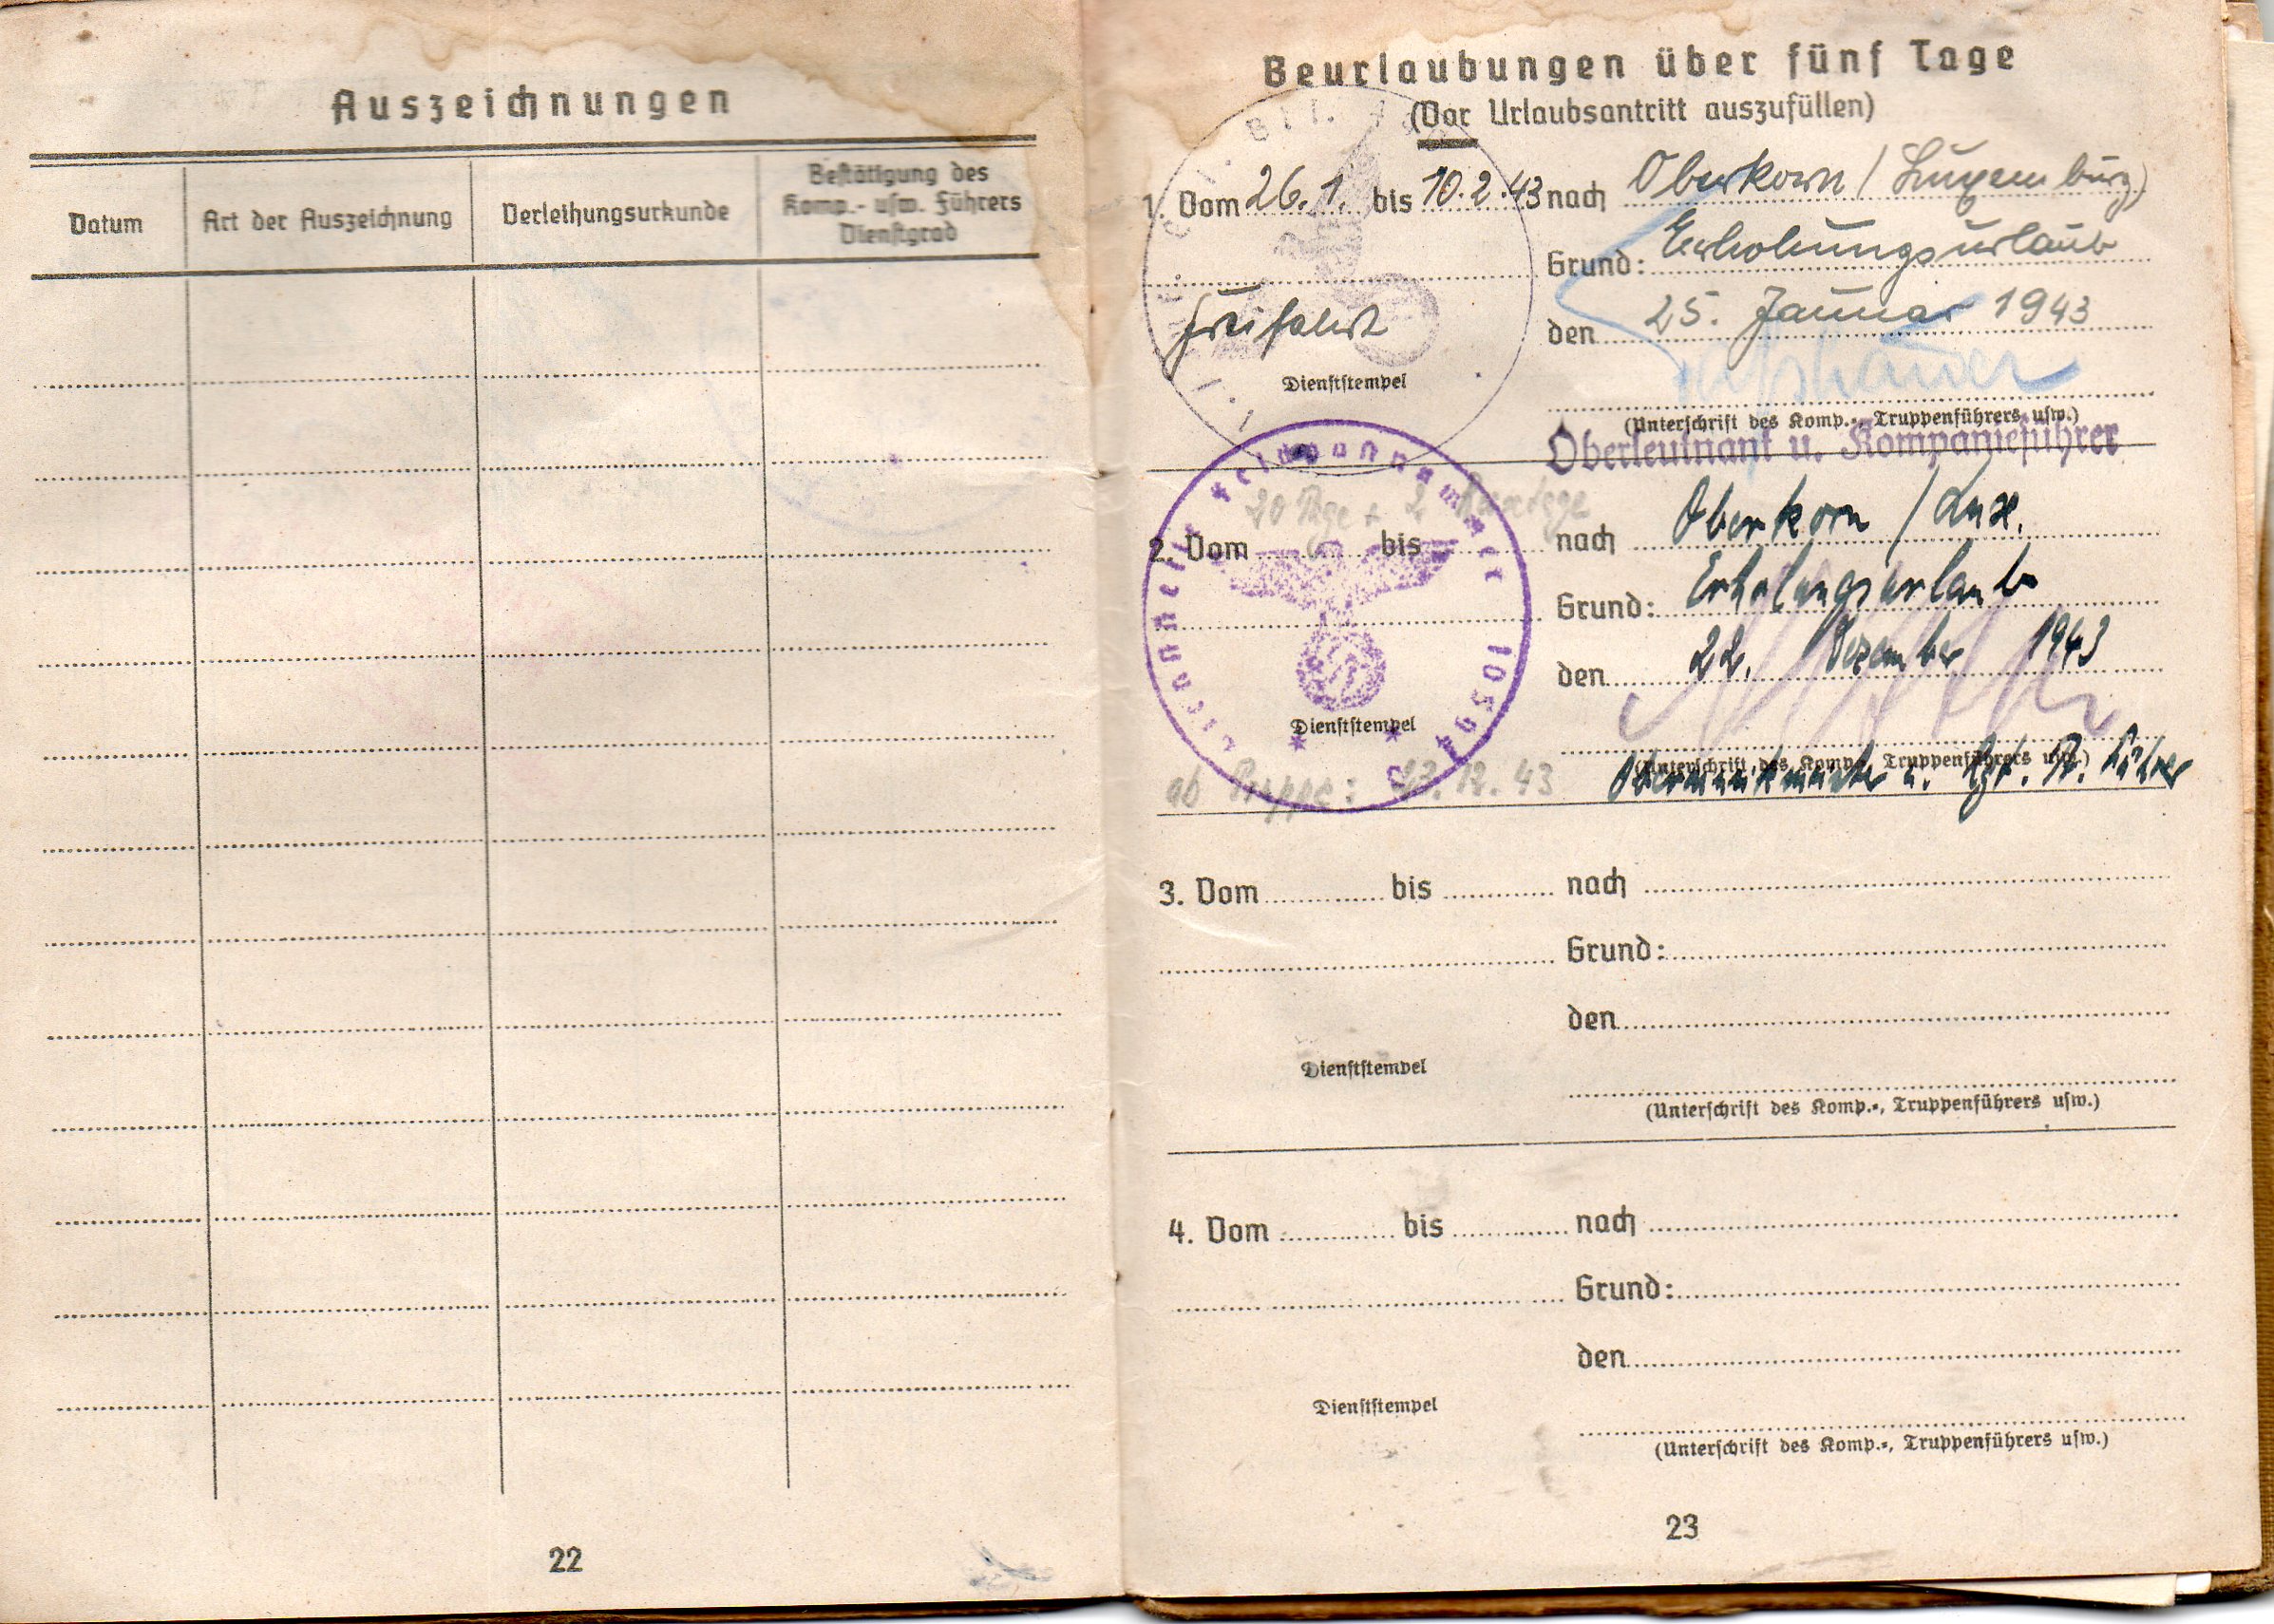 Auszeichnungen
Datum
Art der Auszeichnung
Verleihungsurkunde
Bestätigung des
Komp.- usw. Führers
Dienstgrad
22
Beurlaubungen über fünf Tage
(Vor Urlaubsantritt auszufüllen)
1. Vom 26.1. bis 10.2.43 nach Oberkorn / Luxemburg)
Grund: Erholungsurlaub
den 25. Januar 1943
Dienststempel
(Unterschrift des Komp.-, Truppenführers usw.)
Oberleutnant u. Kompanieführer
20 Tage + 2
2. Vom bis nach Oberkorn / Lux.
Grund: Erholungsurlaub
den 22. Dezember 1943
Dienststempel
Dienststelle Feldpostnummer 10594
(Unterschrift des Komp.-, Truppenführers usw.)
ab Truppe: .12.43
u. Führer
3. Vom bis nach
Grund:
den
Dienststempel
(Unterschrift des Komp.-, Truppenführers usw.)
4. Vom bis nach
Grund:
den
Dienststempel
(Unterschrift des Komp.-, Truppenführers usw.)
23